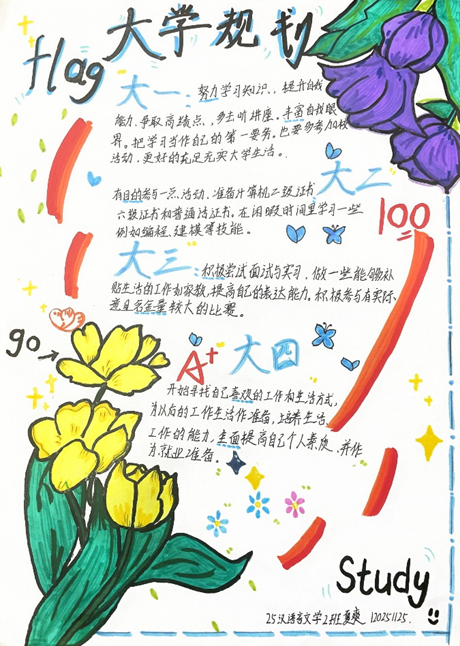 大学规划
flag
大一:努力学习知识、提升自我
能力,争取高绩点、多去听讲座。丰富自我眼
界。把学习当作自己的第一要务,也要多参加校
活动,更好的充足充实大学生活。
大二
有目的参与一点活动,准备计算机二级证书,
六级证书和普通话证书。在闲暇时间里学习一些
例如编程、建模等技能。
100
大三:积极尝试面试与实习,做一些能够补
贴生活的工作和家教,提高自己的表达能力。积极参与有实际
意且含金量较大的比赛。
go
A+
大四
开始寻找自己喜欢的工作和生活方式,
为以后的工作生活作准备,培养生活、
工作的能力,全面提高自己个人素质,并作
为就业准备。
Study
25汉语言文学2班 夏爽 20251125.